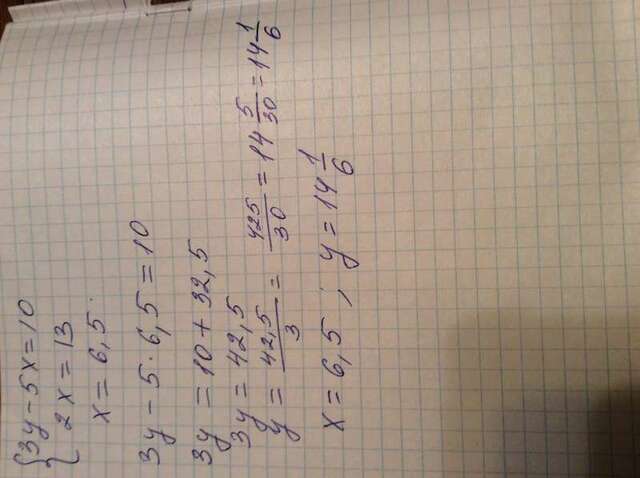 {3y - 5x = 10
2x = 13
x = 6,5
3y - 5 · 6,5 = 10
3y = 10 + 32,5
3y = 42,5
y = 42,5/3 = 425/30 = 14 5/30 = 14 1/6
x = 6,5 ; y = 14 1/6